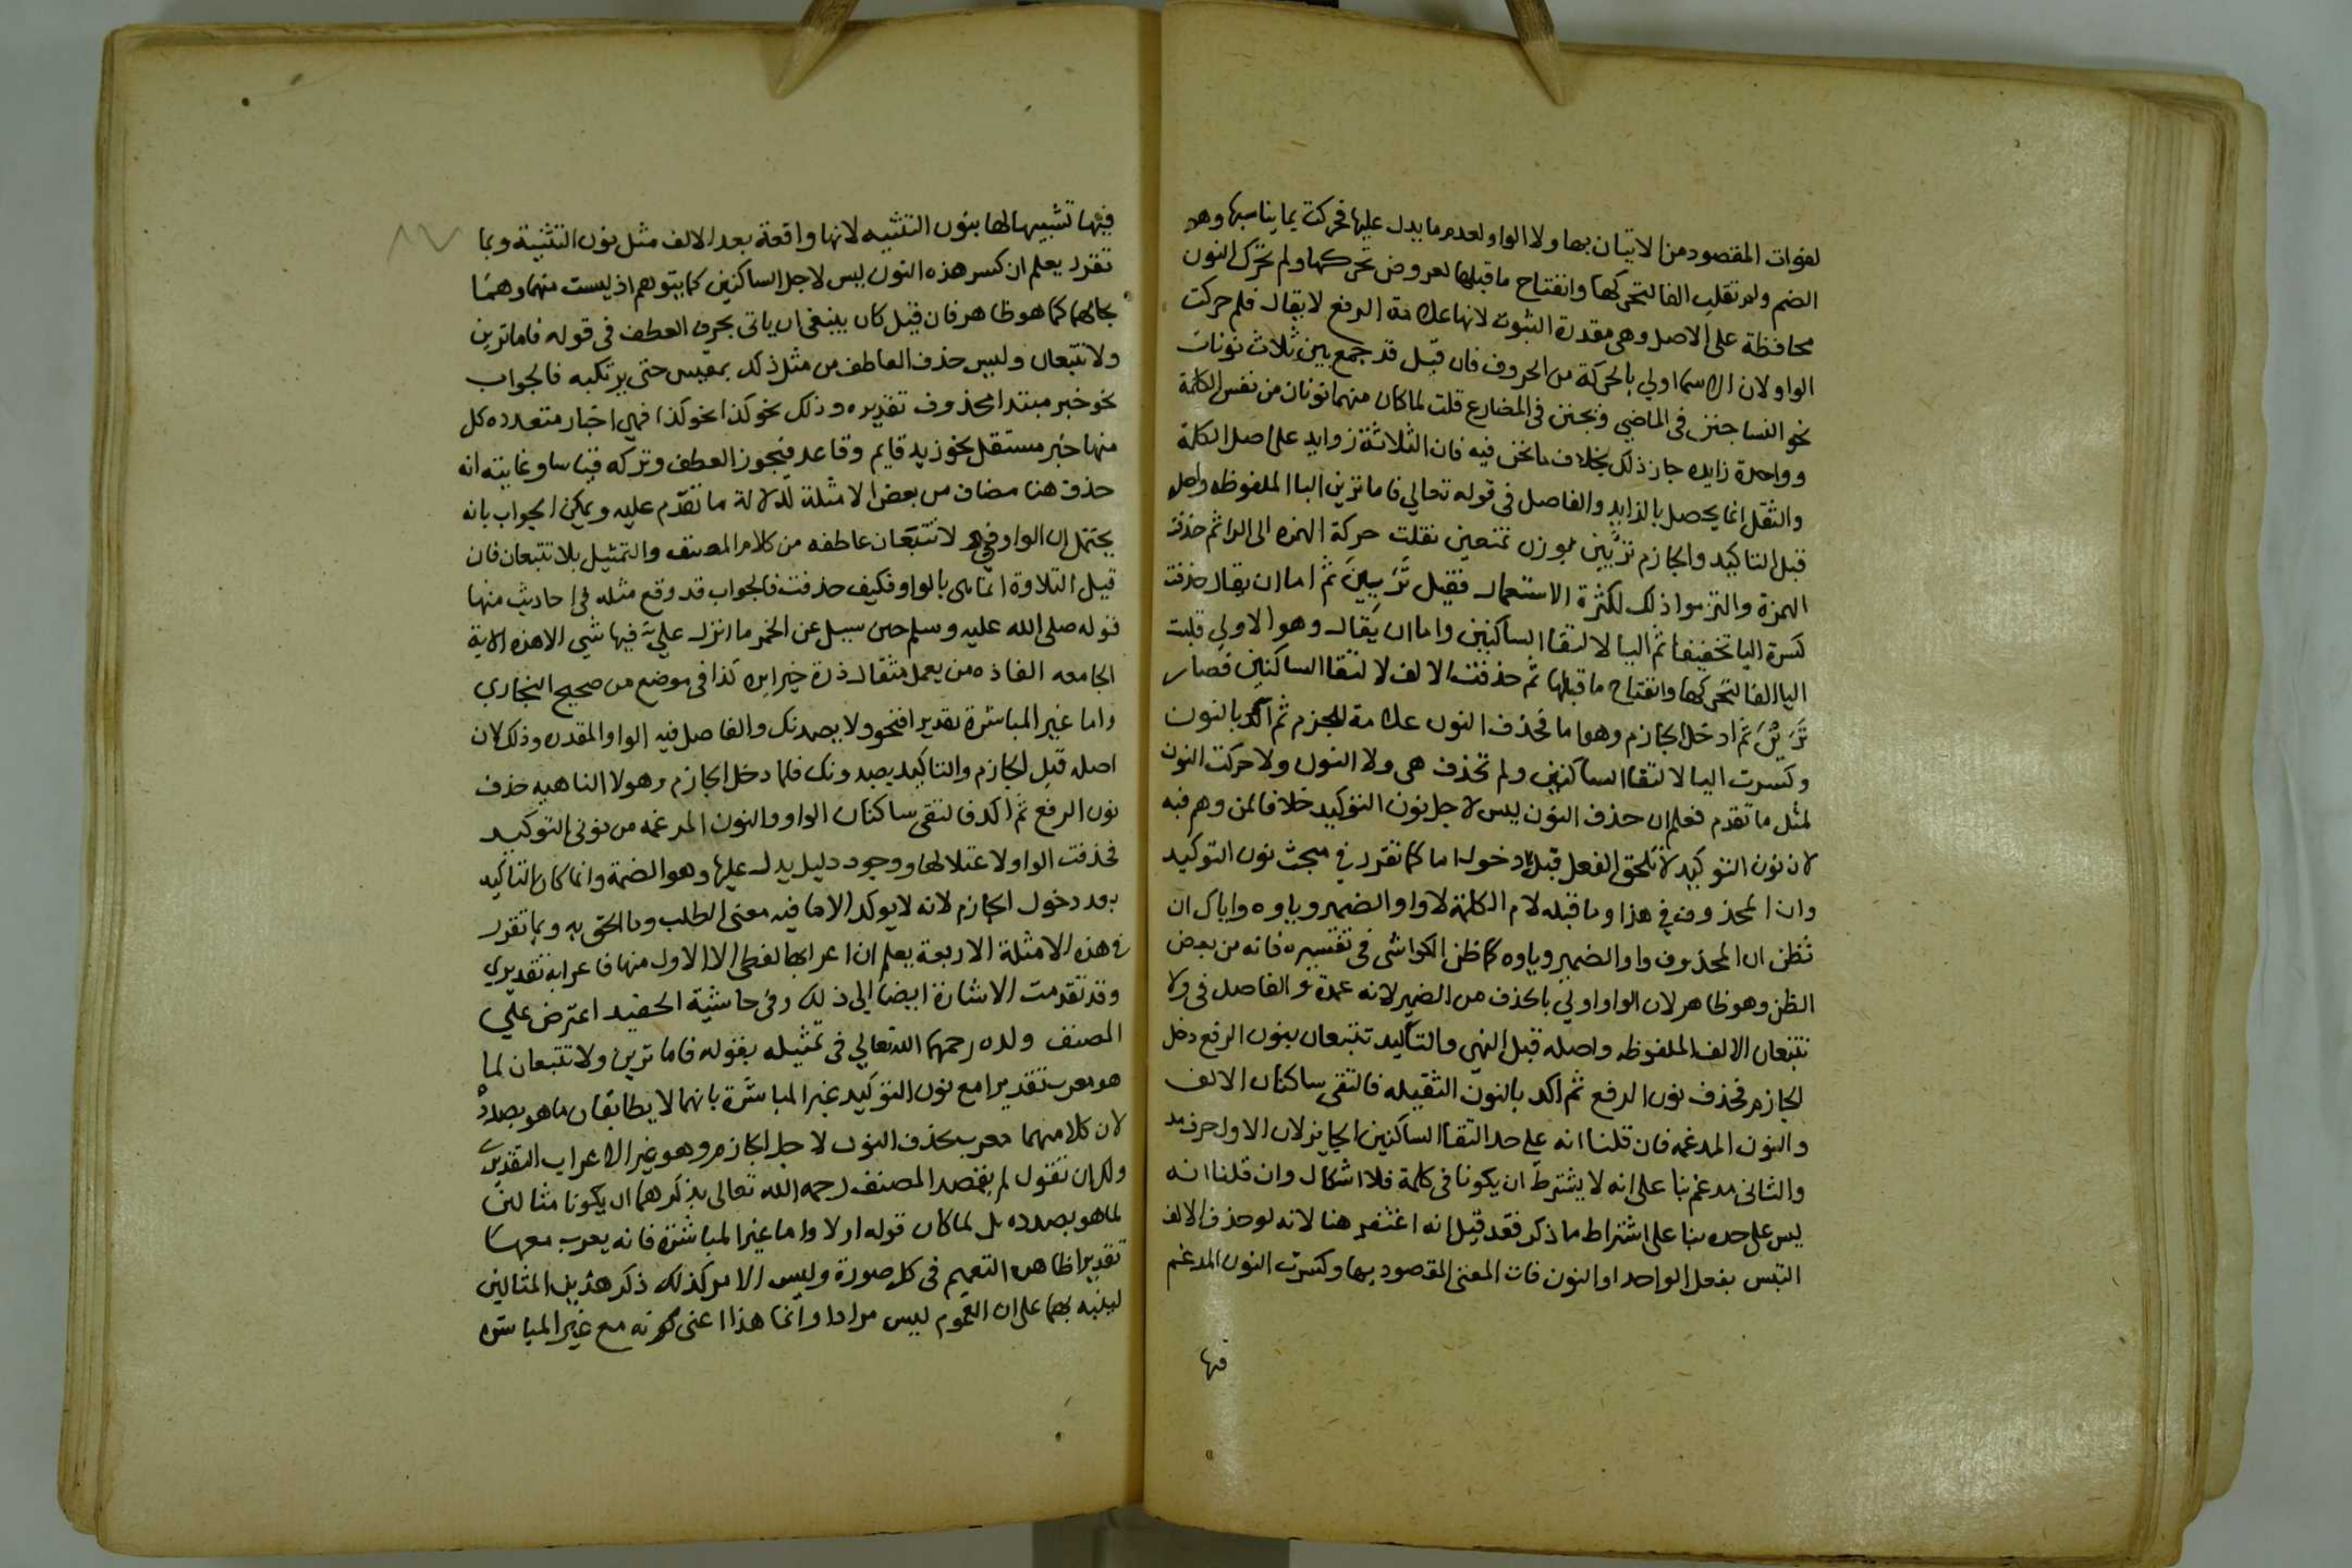 لفوات المقصود من الاتيان بها ولا الواو لعدم ما يدل عليها فحركت بما يناسبها وهو
الضم ولم تقلب الفا لتحركها وانفتاح ما قبلها لعروض تحركها ولم تحرك النون
محافظة على الاصل وهي مقدرة الثبوت لانها علامة الرفع لا يقال فلم حركت
الواو لان الاسما اولي بالحركة من الحروف فان قيل قد جمع بين ثلاث نونات
نحو النسا جنن في الماضي ويجنن في المضارع قلت لما كان منهما نونان من نفس الكلمة
وواحدة زايده جاز ذلك بخلاف ما نحن فيه فان الثلاثة زوايد على اصل الكلمة
والثقل انما يحصل بالزايد والفاصل في قوله تعالي فاما ترين اليا الملفوظه واصله
قبل التاكيد والجازم ترءيين بوزن تمنعين نقلت حركة الهمزه الى الرا ثم حذفت
الهمزة والتزموا ذلك لكثرة الاستعمال فقيل تَرَيِينَ ثم اما ان يقال حذفت
كسرة اليا تخفيفا ثم اليا لالتقا الساكنين واما ان يقال وهو الاولي قلبت
اليا الفا لتحركها وانفتاح ما قبلها ثم حذفت الالف لالتقا الساكنين فصار
تَرَيْنَ ثم ادخل الجازم وهو اما فحذف النون علامة للجزم ثم اكد بالنون
وكسرت اليا لالتقا الساكنين ولم تحذف هي ولا النون ولا حركت النون
لمثل ما تقدم فعلم ان حذف النون ليس لاجل نون التوكيد خلافا لمن وهم فيه
لان نون التوكيد لا تلحق الفعل قبل دخول اما كما تقرر في مبحث نون التوكيد
وان المحذوف في هذا وما قبله لام الكلمة لا واو الضمير وياوه واياك ان
تظن ان المحذوف واو الضمير وياوه كما ظن الكواشي في تفسيره فانه من بعض
الظن وهو ظاهر لان الواو اولي بالحذف من الضمير لانه عمدة والفاصل في ولا
تتبعان الالف الملفوظه واصله قبل النهي والتاكيد تتبعان بنون الرفع دخل
الجازم فحذف نون الرفع ثم اكد بالنون الثقيله فالتقي ساكنان الالف
والنون المدغمه فان قلنا انه علي حد التقا الساكنين الجايز لان الاول حرف مد
والثاني مدغم بنا على انه لا يشترط ان يكونا في كلمة فلا اشكال وان قلنا انه
ليس على حده بنا على اشتراط ما ذكر فقد قيل انه اغتفر هنا لانه لو حذف الالف
التبس بفعل الواحد او النون فات المعنى المقصود بها وكسرت النون المدغم
فيها
فيها تشبيها لها بنون التثنيه لانها واقعة بعد الالف مثل نون التثنية وبما
تقرر يعلم ان كسر هذه النون ليس لاجل الساكنين كما يتوهم اذ ليست منهما وهما
بحالهما كما هو ظاهر فان قيل كان ينبغي ان ياتى بحرف العطف في قوله فاما ترين
ولا تتبعان وليس حذف العاطف من مثل ذلك بمقيس حتى يرتكبه فالجواب
نحو خبر مبتدا محذوف تقديره وذلك نحو كذا نحو كذا فهي اخبار متعدده كل
منها خبر مستقل نحو زيد قايم وقاعد فيجوز العطف وتركه قياسا وغايته انه
حذف هنا مضاف من بعض الامثلة لدلالة ما تقدم عليه ويمكن الجواب بانه
يحتمل ان الواو في ولا تتبعان عاطفه من كلام المصنف والتمثيل بلا تتبعان فان
قيل التلاوة انما هي بالواو فكيف حذفت فالجواب قد وقع مثله في احاديث منها
قوله صلى الله عليه وسلم حين سيل عن الحمر ما انزل علي فيها شي الا هذه الاية
الجامعه الفاذه من يعمل مثقال ذرة خيرا يره كذا في موضع من صحيح البخاري
واما غير المباشرة تقديرا فنحو ولا يصدنك والفاصل فيه الواو المقدره وذلك لان
اصله قبل الجازم والتاكيد يصدونك فلما دخل الجازم وهو لا الناهيه حذف
نون الرفع ثم اكد فالتقى ساكنان الواو والنون المدغمه من نوني التوكيد
فحذفت الواو لاعتلالها ووجود دليل يدل عليها وهو الضمة وانما كان التاكيد
بعد دخول الجازم لانه لا يوكد الا ما فيه معنى الطلب وما الحق به وبما تقرر
في هذه الامثلة الاربعة يعلم ان اعرابها لفظي الا الاول منها فاعرابه تقديري
وقد تقدمت الاشارة ايضا الي ذلك وفي حاشية الحفيد اعترض علي
المصنف ولده رحمهما الله تعالي في تمثيله بقوله فاما ترين ولا تتبعان لما
هو معرب تقديرا مع نون التوكيد غير المباشرة بانهما لا يطابقان ما هو بصدده
لان كلا منهما معرب بحذف النون لاجل الجازم وهو غير الاعراب التقديري
ولك ان تقول لم يقصد المصنف رحمه الله تعالى بذكرهما ان يكونا مثالين
لما هو بصدده بل لما كان قوله اولا واما غير المباشره فانه يعرب معها
تقديرا ظاهره التعميم في كل صورة وليس الامر كذلك ذكر هذين المثالين
لينبه بهما على ان العموم ليس مرادا وانما هذا اعنى كونه مع غير المباشره